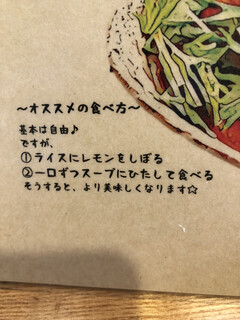 〜オススメの食べ方〜
基本は自由♪
ですが、
①ライスにレモンをしぼる
②一口ずつスープにひたして食べる
そうすると、より美味しくなります☆